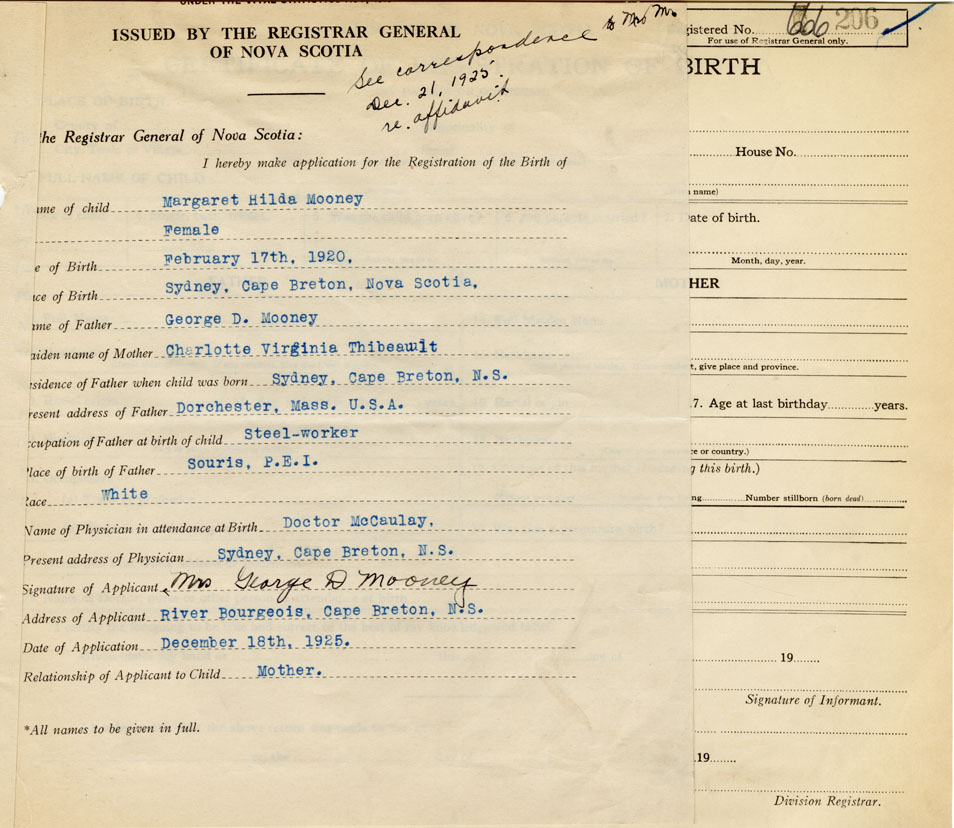 UNDER THE VITAL STATISTICS
ISSUED BY THE REGISTRAR GENERAL
OF NOVA SCOTIA
See correspondence to Mrs Mo
Dec. 21, 1925.
re. affidavit
the Registrar General of Nova Scotia:
I hereby make application for the Registration of the Birth of
me of child Margaret Hilda Mooney
Female
e of Birth February 17th, 1920,
ce of Birth Sydney, Cape Breton, Nova Scotia,
me of Father George D. Mooney
aiden name of Mother Charlotte Virginia Thibeault
sidence of Father when child was born Sydney, Cape Breton, N.S.
resent address of Father Dorchester, Mass. U.S.A.
ccupation of Father at birth of child Steel-worker
lace of birth of Father Souris, P.E.I.
ace White
Name of Physician in attendance at Birth Doctor McCaulay,
Present address of Physician Sydney, Cape Breton, N.S.
Signature of Applicant Mrs George D Mooney
Address of Applicant River Bourgeois, Cape Breton, N.S.
Date of Application December 18th, 1925.
Relationship of Applicant to Child Mother.
*All names to be given in full.
gistered No. 206
For use of Registrar General only.
BIRTH
House No.
name)
Date of birth.
Month, day, year.
HER
t, give place and province.
7. Age at last birthday years.
ce or country.)
g this birth.)
ng Number stillborn (born dead)
19
Signature of Informant.
19
Division Registrar.